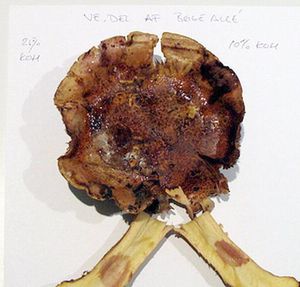 VEJDEL AF BØGEALLÉ
20%
KOH
10% KOH